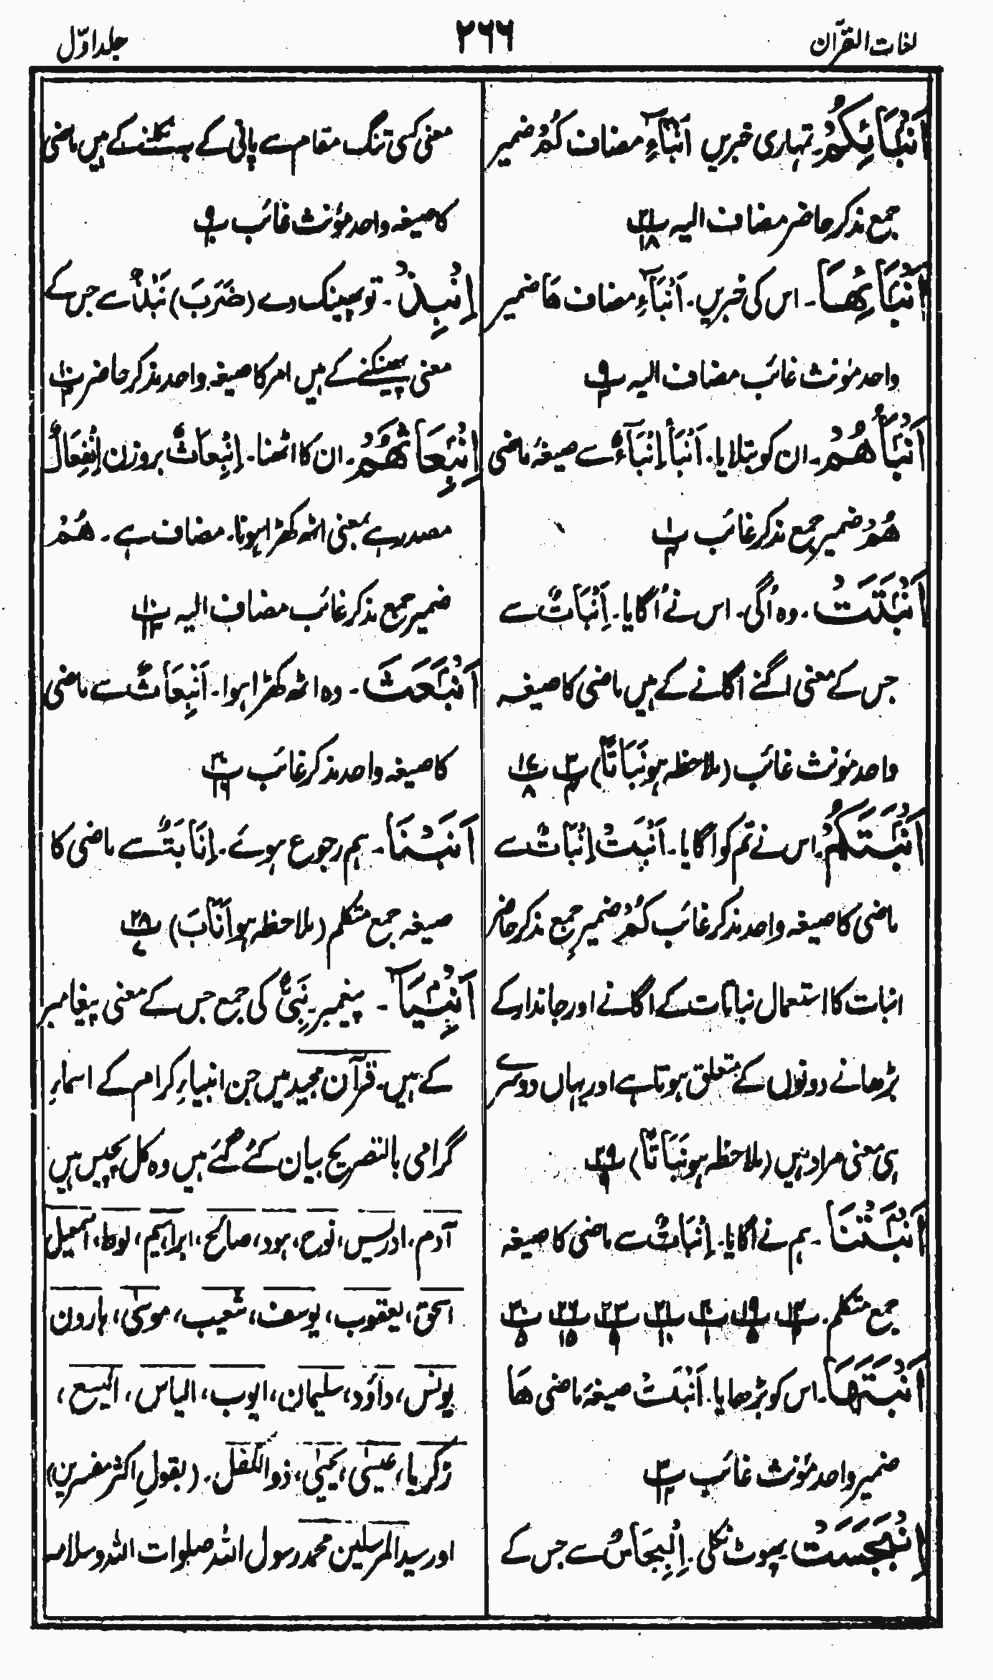 لغات القرآن
٢٦٦
جلد اوّل
اَنْۢبَآئِكُمْ۔ تمہاری خبریں اَنْۢبَآءِ مضاف كُمْ ضمیر
جمع مذکر حاضر مضاف الیہ پ ٢١/١٨
اَنْۢبَآئِهَا۔ اس کی خبریں۔ اَنْۢبَآءِ مضاف هَا ضمیر
واحد مؤنث غائب مضاف الیہ پ ٩
اَنْۢبَأَهُمْ۔ ان کو بتلایا۔ اَنْۢبَأَ اِنْۢبَآءٌ سے صیغۂ ماضی
هُمْ ضمیر جمع مذکر غائب پ ١
اَنْۢبَتَتْ۔ وہ اُگی۔ اس نے اُگایا۔ اِنْۢبَاتٌ سے
جس کے معنی اگنے اگانے کے ہیں ماضی کا صیغہ
واحد مؤنث غائب (ملاحظہ ہو نَبَاتًا) پ ٣ پ ١٧/٨
اَنْۢبَتَكُمْ۔ اس نے تم کو اگایا۔ اَنْۢبَتَ اِنْۢبَاتٌ سے
ماضی کا صیغہ واحد مذکر غائب كُمْ ضمیر جمع مذکر حاضر
انبات کا استعمال نباتات کے اگانے اور جاندار کے
بڑھانے دونوں کے متعلق ہوتا ہے اور یہاں دوسرے
ہی معنی مراد ہیں (ملاحظہ ہو نَبَاتًا) پ ٢٩/٩
اَنْۢبَتْنَا۔ ہم نے اگایا۔ اِنْۢبَاتٌ سے ماضی کا صیغہ
جمع متکلم۔ پ ١٤ پ ١٩ پ ٢٠/١ پ ٢١/١٠ پ ٢٣/٩ پ ٢٦/١٥ پ ٣٠/٥
اَنْۢبَتَهَا۔ اس کو بڑھایا۔ اَنْۢبَتَ صیغۂ ماضی هَا
ضمیر واحد مؤنث غائب پ ٣/١٢
اِنْۢبَجَسَتْ پھوٹ نکلی۔ اِنْۢبِجَاسٌ سے جس کے
معنی کسی تنگ مقام سے پانی کے بہہ نکلنے کے ہیں ماضی
کا صیغہ واحد مؤنث غائب پ ٩
اِنْۢبِذْ۔ تو پھینک دے (ضَرَبَ) نَبْذٌ سے جس کے
معنی پھینکنے کے ہیں امر کا صیغہ واحد مذکر حاضر پ ١٠
اِنْۢبِعَاثَهُمْ۔ ان کا اٹھنا۔ اِنْۢبِعَاثٌ بروزن اِنْفِعَالٌ
مصدر ہے بمعنی اٹھ کھڑا ہونا۔ مضاف ہے۔ هُمْ
ضمیر جمع مذکر غائب مضاف الیہ پ ١٠/١٣
اَنْۢبَعَثَ۔ وہ اٹھ کھڑا ہوا۔ اِنْۢبِعَاثٌ سے ماضی
کا صیغہ واحد مذکر غائب پ ٣٠/١٦
اَنَبْنَا۔ ہم رجوع ہوئے۔ اِنَابَتٌ سے ماضی کا
صیغہ جمع متکلم (ملاحظہ ہو اَنَابَ) پ ٢٨/٧
اَنْۢبِيَآءَ۔ پیغمبر۔ نَبِيٌّ کی جمع جس کے معنی پیغامبر
کے ہیں۔ قرآن مجید میں جن انبیاءِ کرام کے اسماءِ
گرامی بالتصریح بیان کئے گئے ہیں وہ کل پچیس ہیں
آدم، ادریس، نوح، ہود، صالح، ابراہیم، لوط، اسمٰعیل
اسحٰق، یعقوب، یوسف، شعیب، موسیٰ، ہارون
یونس، داؤد، سلیمان، ایوب، الیاس، الیسع،
زکریا، عیسیٰ، یحییٰ، ذوالکفل۔ (بقولِ اکثر مفسرین)
اور سید المرسلین محمد رسول اللہ صلوات اللہ وسلامہ